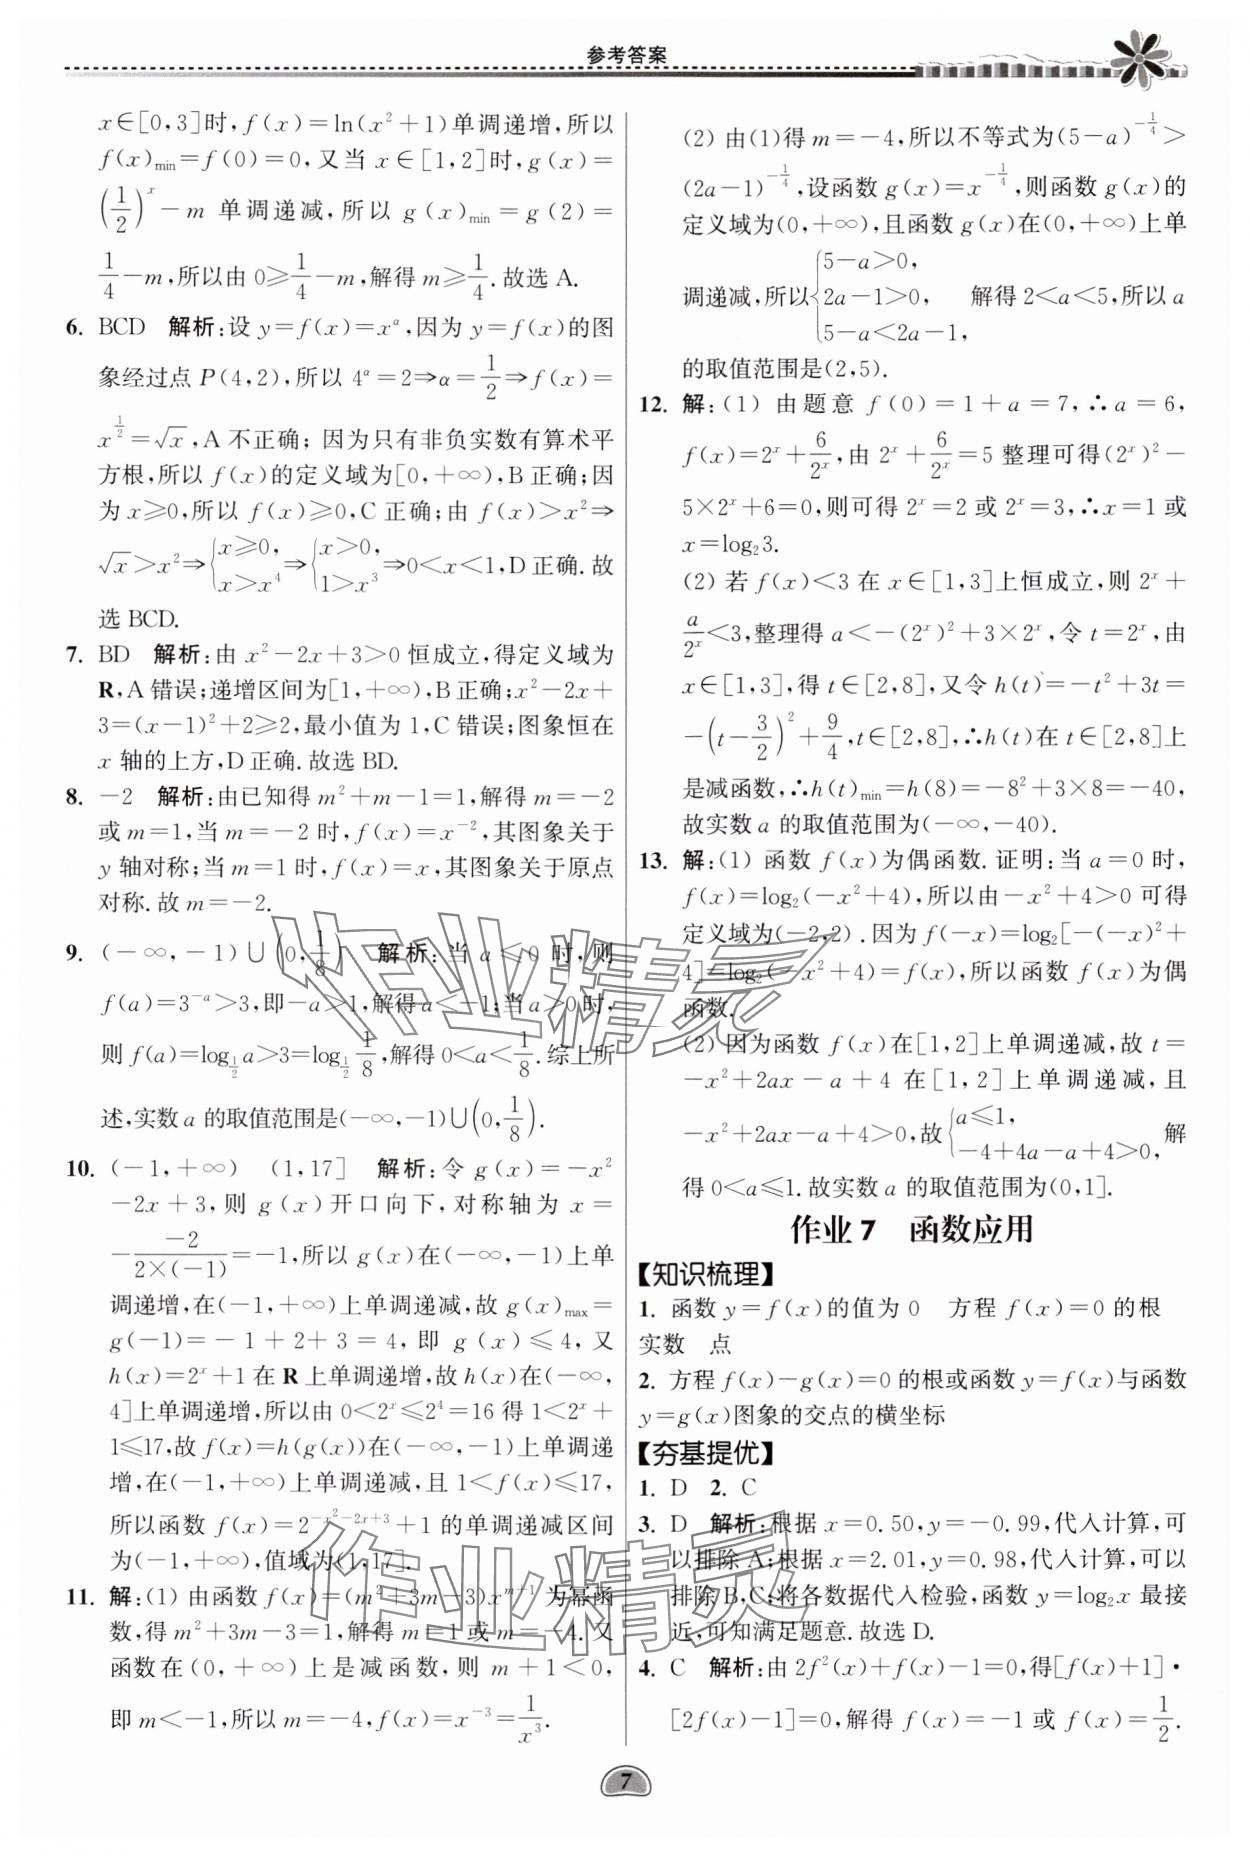 参考答案
x∈[0,3]时,f(x)=ln(x²+1)单调递增,所以
f(x)min=f(0)=0,又当 x∈[1,2]时,g(x)=
(1/2)^x-m 单调递减,所以 g(x)min=g(2)=
1/4-m,所以由 0≥1/4-m,解得m≥1/4.故选 A.
6. BCD 解析:设 y=f(x)=x^α,因为 y=f(x)的图
象经过点 P(4,2),所以 4^α=2⇒α=1/2⇒f(x)=
x^(1/2)=√x,A 不正确;因为只有非负实数有算术平
方根,所以 f(x)的定义域为[0,+∞),B 正确;因
为x≥0,所以 f(x)≥0,C 正确;由 f(x)>x²⇒
√x>x²⇒{x≥0, x>x⁴⇒{x>0, 1>x³⇒0<x<1,D 正确.故
选 BCD.
7. BD 解析:由 x²-2x+3>0 恒成立,得定义域为
R,A 错误;递增区间为[1,+∞),B 正确;x²-2x+
3=(x-1)²+2≥2,最小值为 1,C 错误;图象恒在
x 轴的上方,D 正确.故选 BD.
8. -2 解析:由已知得 m²+m-1=1,解得 m=-2
或m=1,当 m=-2 时,f(x)=x⁻²,其图象关于
y 轴对称;当 m=1 时,f(x)=x,其图象关于原点
对称.故 m=-2.
9. (-∞,-1)∪(0,1/8) 解析:当 a≤0 时,则
f(a)=3^(-a)>3,即-a>1,解得 a<-1;当a>0时,
则 f(a)=log_(1/2)a>3=log_(1/2)1/8,解得 0<a<1/8.综上所
述,实数a 的取值范围是(-∞,-1)∪(0,1/8).
10. (-1,+∞) (1,17] 解析:令 g(x)=-x²
-2x+3,则 g(x)开口向下,对称轴为 x=
-(-2)/(2×(-1))=-1,所以 g(x)在(-∞,-1)上单
调递增,在(-1,+∞)上单调递减,故 g(x)max=
g(-1)=-1+2+3=4,即 g(x)≤4,又
h(x)=2^x+1在 R 上单调递增,故 h(x)在(-∞,
4]上单调递增,所以由 0<2^x≤2⁴=16 得 1<2^x+
1≤17,故 f(x)=h(g(x))在(-∞,-1)上单调递
增,在(-1,+∞)上单调递减,且 1<f(x)≤17,
所以函数 f(x)=2^(-x²-2x+3)+1 的单调递减区间
为(-1,+∞),值域为(1,17].
11. 解:(1) 由函数 f(x)=(m²+3m-3)x^(m+1)为幂函
数,得 m²+3m-3=1,解得 m=1 或 m=-4.又
函数在(0,+∞)上是减函数,则 m+1<0,
即 m<-1,所以 m=-4,f(x)=x⁻³=1/x³.
(2) 由(1)得 m=-4,所以不等式为(5-a)^(-1/4)>
(2a-1)^(-1/4),设函数 g(x)=x^(-1/4),则函数 g(x)的
定义域为(0,+∞),且函数 g(x)在(0,+∞)上单
调递减,所以{5-a>0, 2a-1>0, 5-a<2a-1, 解得 2<a<5,所以 a
的取值范围是(2,5).
12. 解:(1) 由题意 f(0)=1+a=7,∴a=6,
f(x)=2^x+6/2^x,由 2^x+6/2^x=5 整理可得(2^x)²-
5×2^x+6=0,则可得 2^x=2 或 2^x=3,∴x=1 或
x=log₂3.
(2) 若 f(x)<3 在 x∈[1,3]上恒成立,则 2^x+
a/2^x<3,整理得 a<-(2^x)²+3×2^x,令 t=2^x,由
x∈[1,3],得 t∈[2,8],又令 h(t)=-t²+3t=
-(t-3/2)²+9/4,t∈[2,8],∴h(t)在 t∈[2,8]上
是减函数,∴h(t)min=h(8)=-8²+3×8=-40,
故实数 a 的取值范围为(-∞,-40).
13. 解:(1) 函数 f(x)为偶函数.证明:当 a=0 时,
f(x)=log₂(-x²+4),所以由-x²+4>0 可得
定义域为(-2,2).因为 f(-x)=log₂[-(-x)²+
4]=log₂(-x²+4)=f(x),所以函数 f(x)为偶
函数.
(2) 因为函数 f(x)在[1,2]上单调递减,故 t=
-x²+2ax-a+4 在[1,2]上单调递减,且
-x²+2ax-a+4>0,故{a≤1, -4+4a-a+4>0, 解
得 0<a≤1.故实数 a 的取值范围为(0,1].
作业 7 函数应用
【知识梳理】
1. 函数 y=f(x)的值为 0 方程 f(x)=0 的根
实数 点
2. 方程 f(x)-g(x)=0 的根或函数 y=f(x)与函数
y=g(x)图象的交点的横坐标
【夯基提优】
1. D 2. C
3. D 解析:根据 x=0.50,y=-0.99,代入计算,可
以排除 A;根据 x=2.01,y=0.98,代入计算,可以
排除 B,C;将各数据代入检验,函数 y=log₂x 最接
近,可知满足题意.故选 D.
4. C 解析:由 2f²(x)+f(x)-1=0,得[f(x)+1]·
[2f(x)-1]=0,解得 f(x)=-1 或 f(x)=1/2.
7
作业精灵
作业精灵